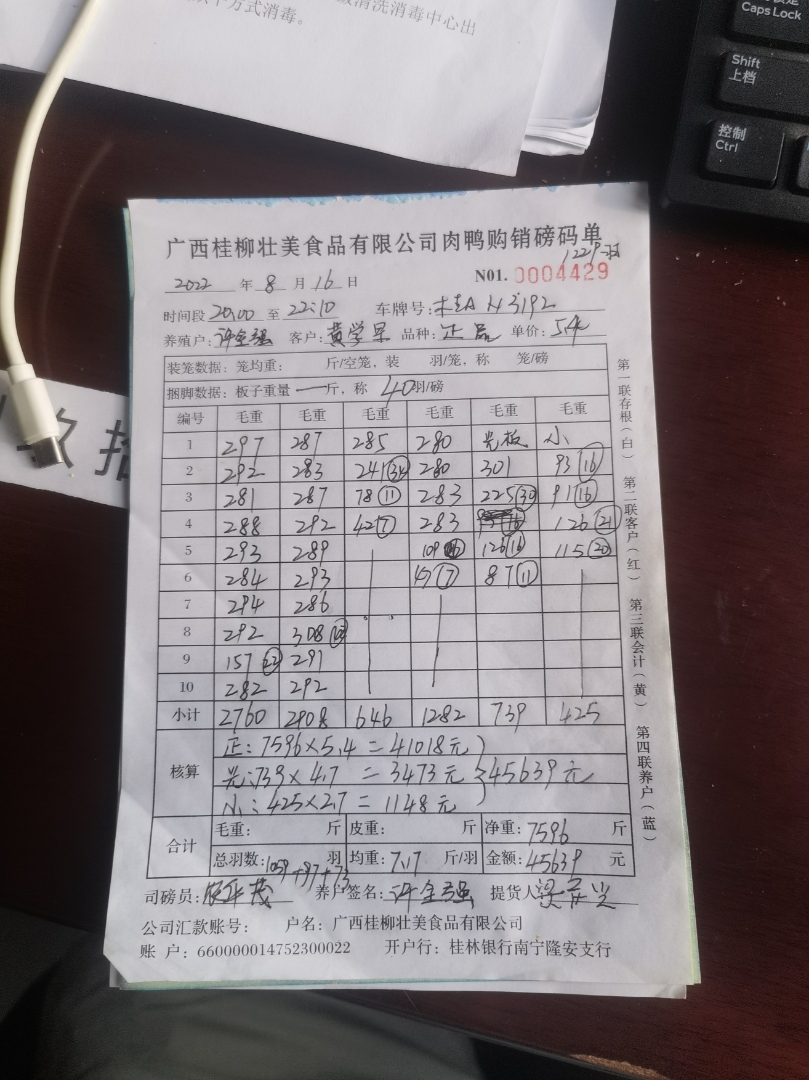 清洗消毒中心出
方式消毒。
Caps Lock
Shift
上档
控制
Ctrl
广西桂柳壮美食品有限公司肉鸭购销磅码单
1229羽
2022 年 8 月 16 日 N01. 0004429
时间段 20:00 至 22:10 车牌号: 桂A H3192
养殖户: 许全强 客户: 黄学早 品种: 正品 单价: 5.4
装笼数据: 笼均重: 斤/空笼, 装 羽/笼, 称 笼/磅
捆脚数据: 板子重量 一 斤, 称 40 羽/磅
编号 毛重 毛重 毛重 毛重 毛重 毛重
1 297 287 285 280 光板 小
2 292 283 241(34) 280 301 93(16)
3 281 287 78(11) 283 225(30) 91(16)
4 288 292 42(7) 283 126(21)
5 293 289 109 126(16) 115(20)
6 284 293 47(7) 87(11)
7 294 286
8 292 308
9 157(23) 291
10 282 292
小计 2760 2908 646 1282 739 425
核算
正: 7596×5.4 = 41018元
光: 739×4.7 = 3473元 45639元
小: 425×2.7 = 1148元
合计
毛重: 斤 皮重: 斤 净重: 7596 斤
总羽数: 1059+97+73 羽 均重: 7.17 斤/羽 金额: 45639 元
司磅员: 养户签名: 许全强 提货人:
公司汇款账号: 户名: 广西桂柳壮美食品有限公司
账 户: 660000014752300022 开户行: 桂林银行南宁隆安支行
第一联存根(白)
第二联客户(红)
第三联会计(黄)
第四联养户(蓝)